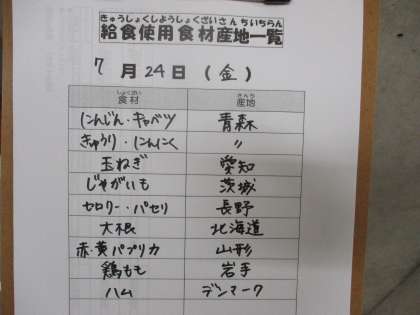 きゅうしょくしようしょくざいさんちいちらん
給食使用食材産地一覧
7月24日(金)
しょくざい さんち
食材 産地
にんじん・キャベツ 青森
きゅうり・にんにく 〃
玉ねぎ 愛知
じゃがいも 茨城
セロリー・パセリ 長野
大根 北海道
赤・黄パプリカ 山形
鶏もも 岩手
ハム デンマーク